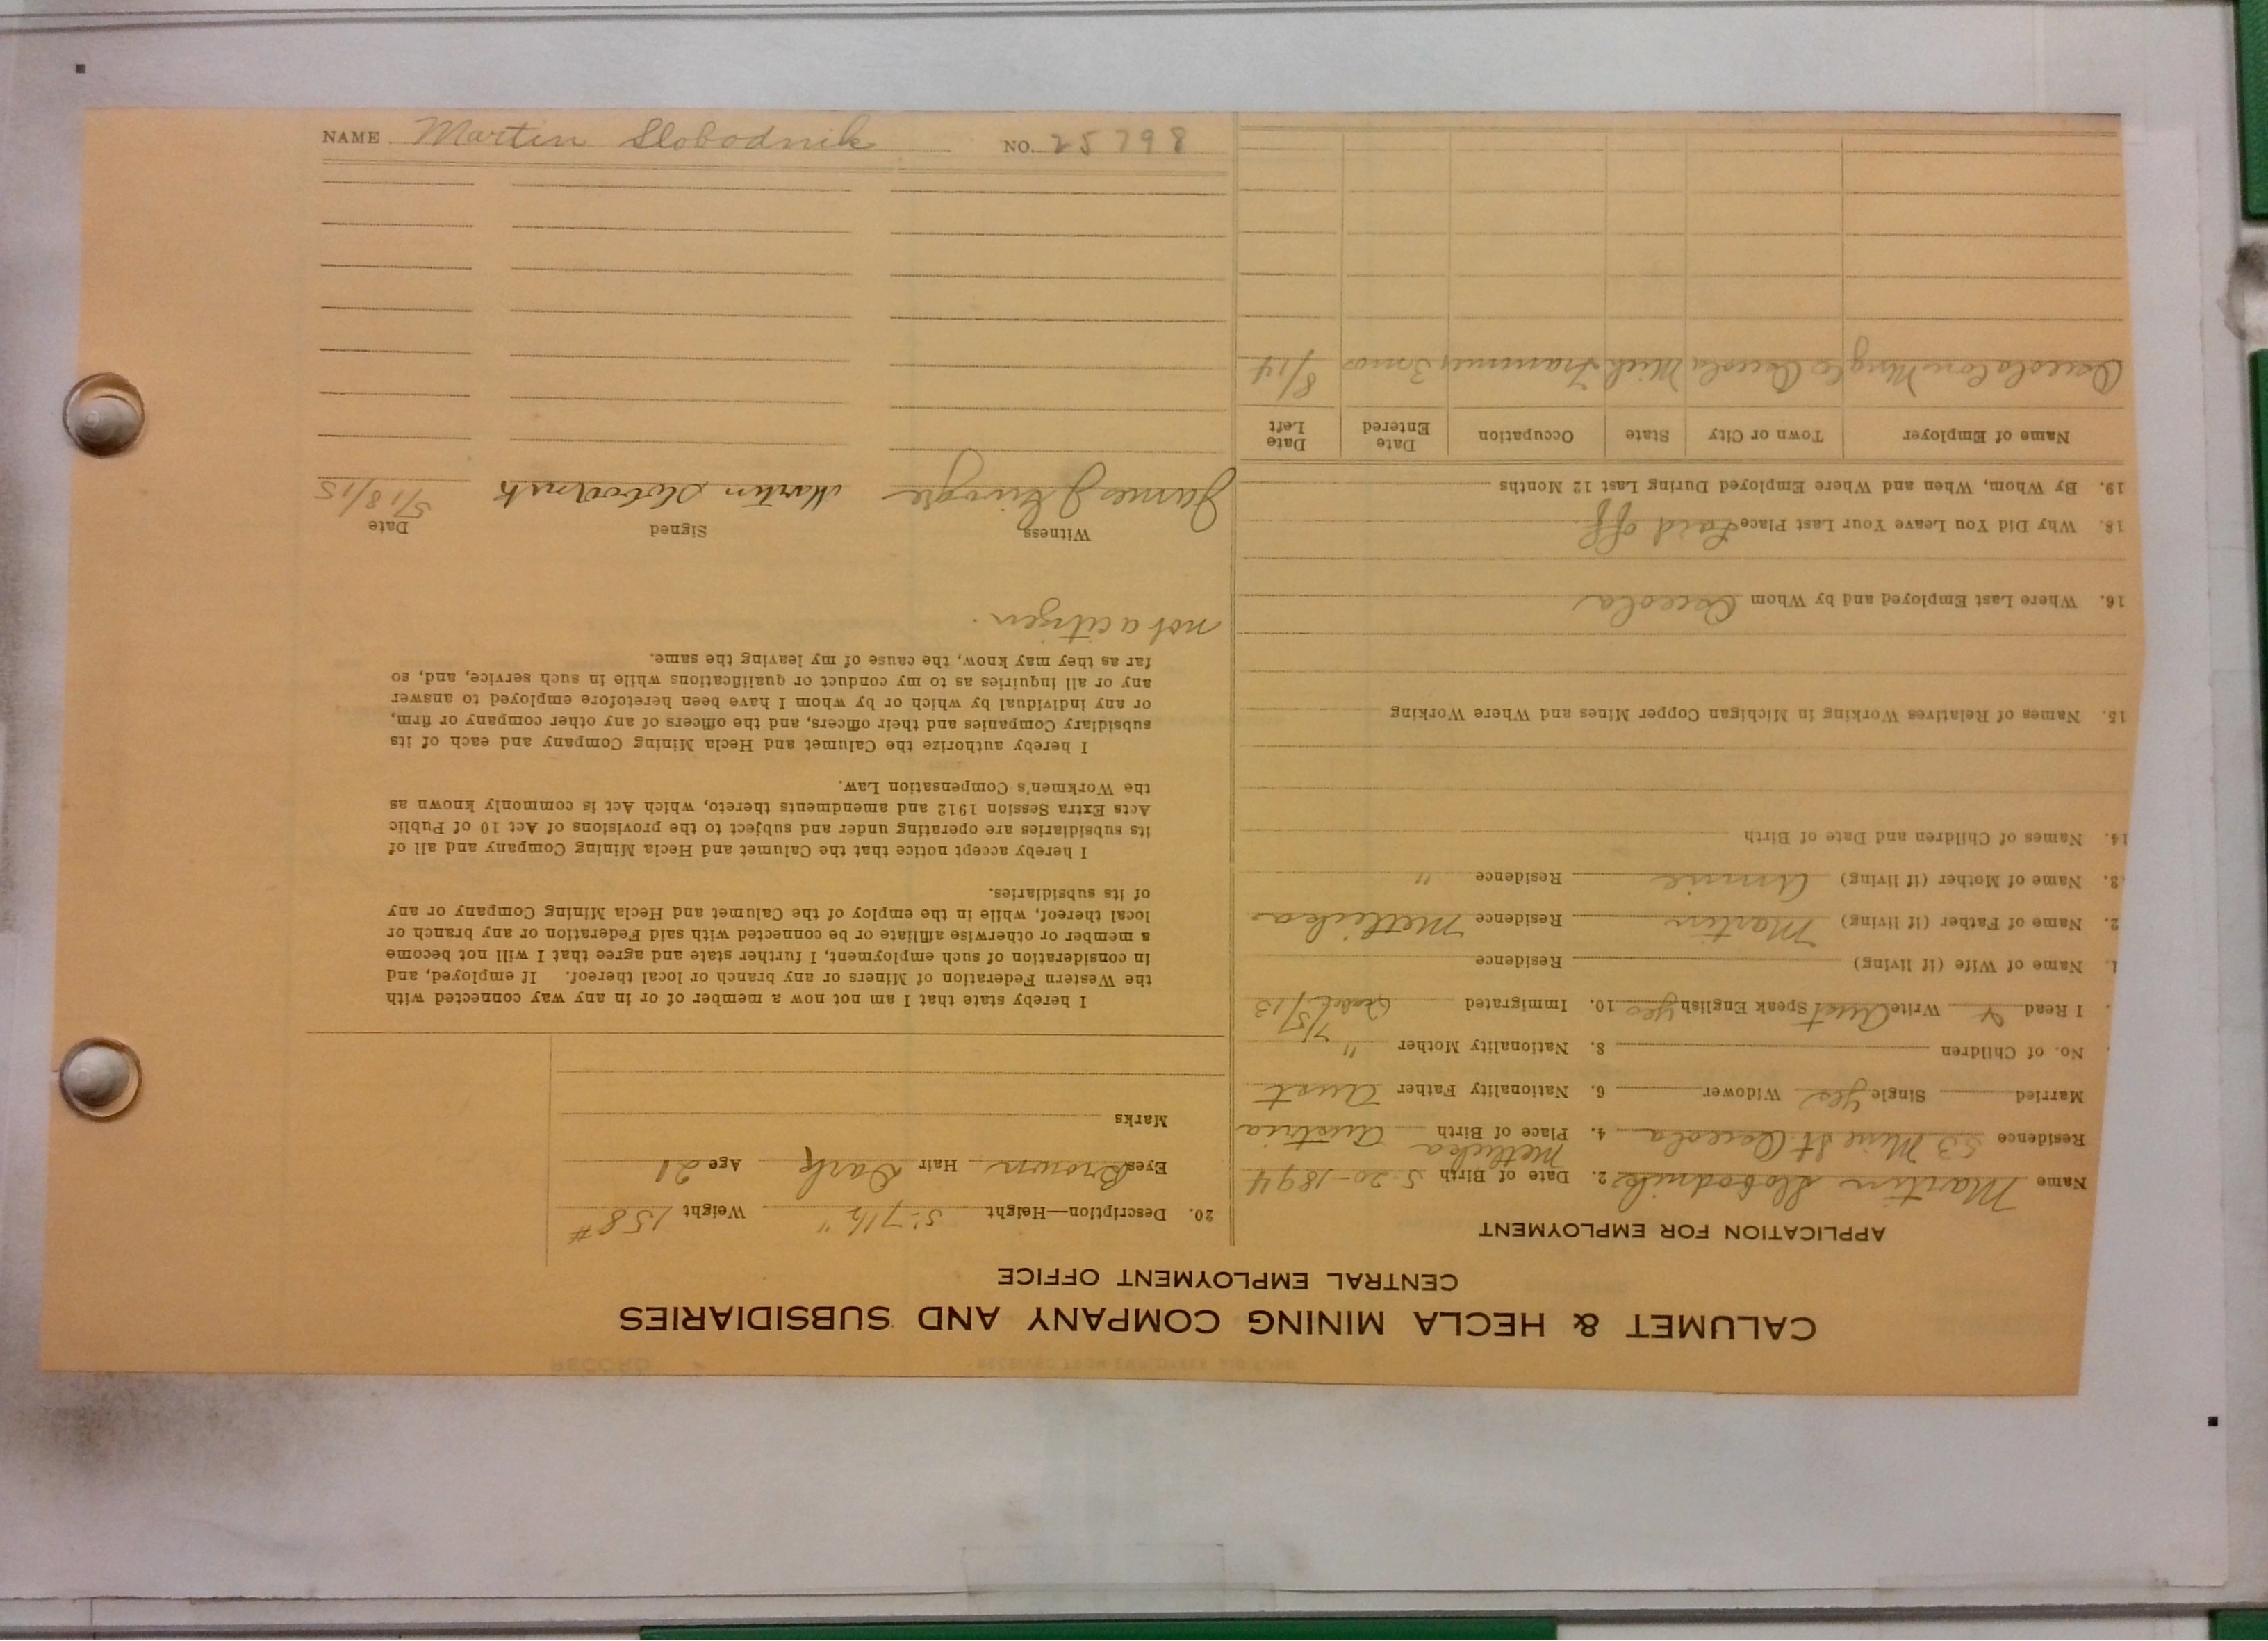 CALUMET & HECLA MINING COMPANY AND SUBSIDIARIES
CENTRAL EMPLOYMENT OFFICE
APPLICATION FOR EMPLOYMENT
Name Martin Slobodnik 2. Date of Birth 5-20-1894
Metlicka
Residence 53 Mine St. Osceola 4. Place of Birth Austria
Married Single Yes Widower 6. Nationality Father Aust
No. of Children 8. Nationality Mother "
7/5/13
I Read & Write Aust Speak English Yes 10. Immigrated
1. Name of Wife (if living) Residence
2. Name of Father (if living) Martin Residence Metlicka
3. Name of Mother (if living) Annie Residence "
14. Names of Children and Date of Birth
15. Names of Relatives Working in Michigan Copper Mines and Where Working
16. Where Last Employed and by Whom Osceola
18. Why Did You Leave Your Last Place Laid off.
19. By Whom, When and Where Employed During Last 12 Months
Name of Employer Town or City State Occupation Date Entered Date Left
Osceola Con Mng Co Osceola Mich Trammer 3 mos 8/14
20. Description—Height 5-7½" Weight 158#
Eyes Brown Hair Dark Age 21
Marks
I hereby state that I am not now a member of or in any way connected with
the Western Federation of Miners or any branch or local thereof. If employed, and
in consideration of such employment, I further state and agree that I will not become
a member or otherwise affiliate or be connected with said Federation or any branch or
local thereof, while in the employ of the Calumet and Hecla Mining Company or any
of its subsidiaries.
I hereby accept notice that the Calumet and Hecla Mining Company and all of
its subsidiaries are operating under and subject to the provisions of Act 10 of Public
Acts Extra Session 1912 and amendments thereto, which Act is commonly known as
the Workmen's Compensation Law.
I hereby authorize the Calumet and Hecla Mining Company and each of its
subsidiary Companies and their officers, and the officers of any other company or firm,
or any individual by which or by whom I have been heretofore employed to answer
any or all inquiries as to my conduct or qualifications while in such service, and, so
far as they may know, the cause of my leaving the same.
not a citizen.
Witness Signed Date
James J Martin Slobodnik 5/18/15
NAME Martin Slobodnik NO. 25798